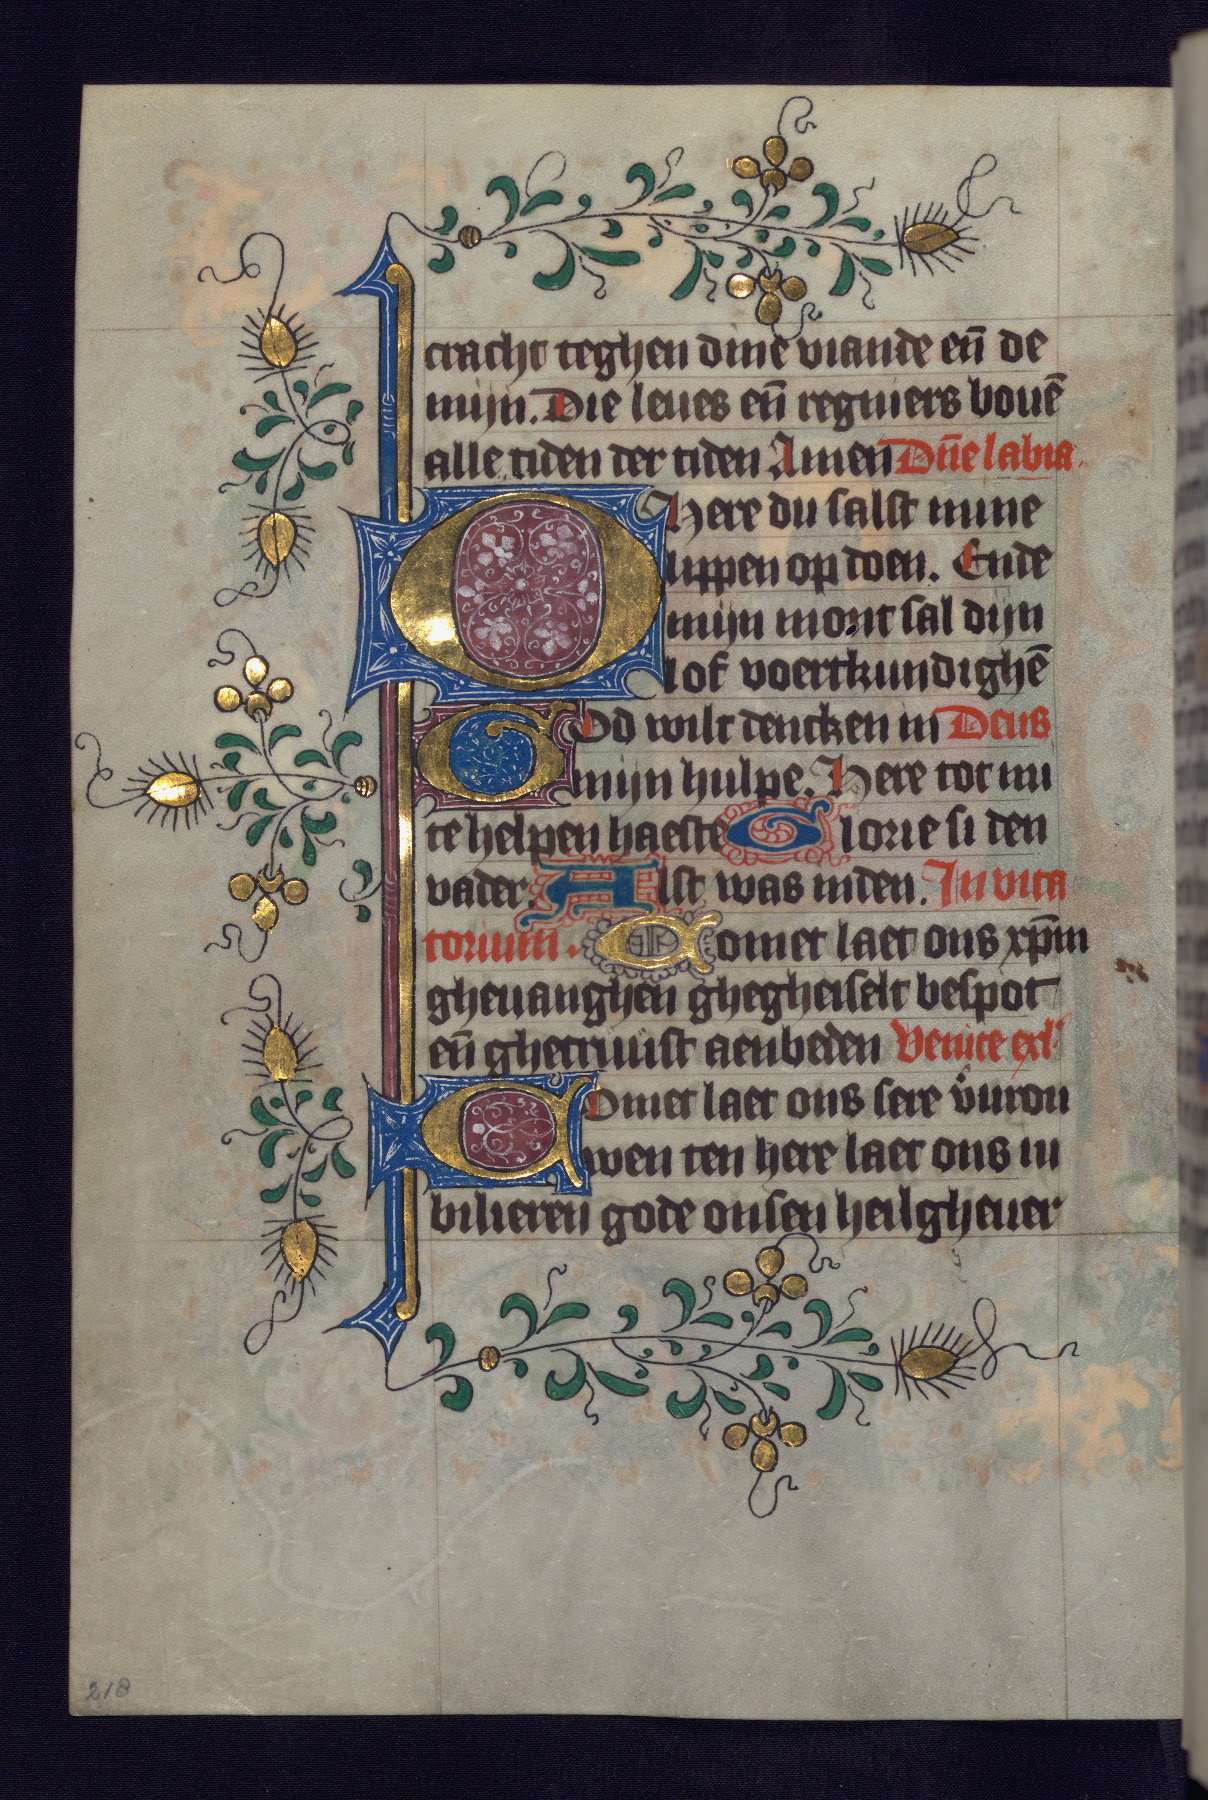 cracht teghen dine viande en̄ de
mijn. Die leues en̄ regniers bouē
alle tiden der tiden Amen Dn̄e labia.
O Here du salst mine
lippen op doen. Ende
mijn mont sal dijn
lof voertkundighē
GOd wilt dencken in Deus
mijn hulpe. Here tot mi
te helpen haeste Glorie si den
vader. Alst was inden. Invita
torium. Comet laet ons xp̄m
gheuanghen ghegheiselt bespot
en̄ ghecruust aenbeden Venite exl
COmet laet ons sere vͦurou
wen ten here laet ons iu
bilieren gode onsen heilgheuer
218